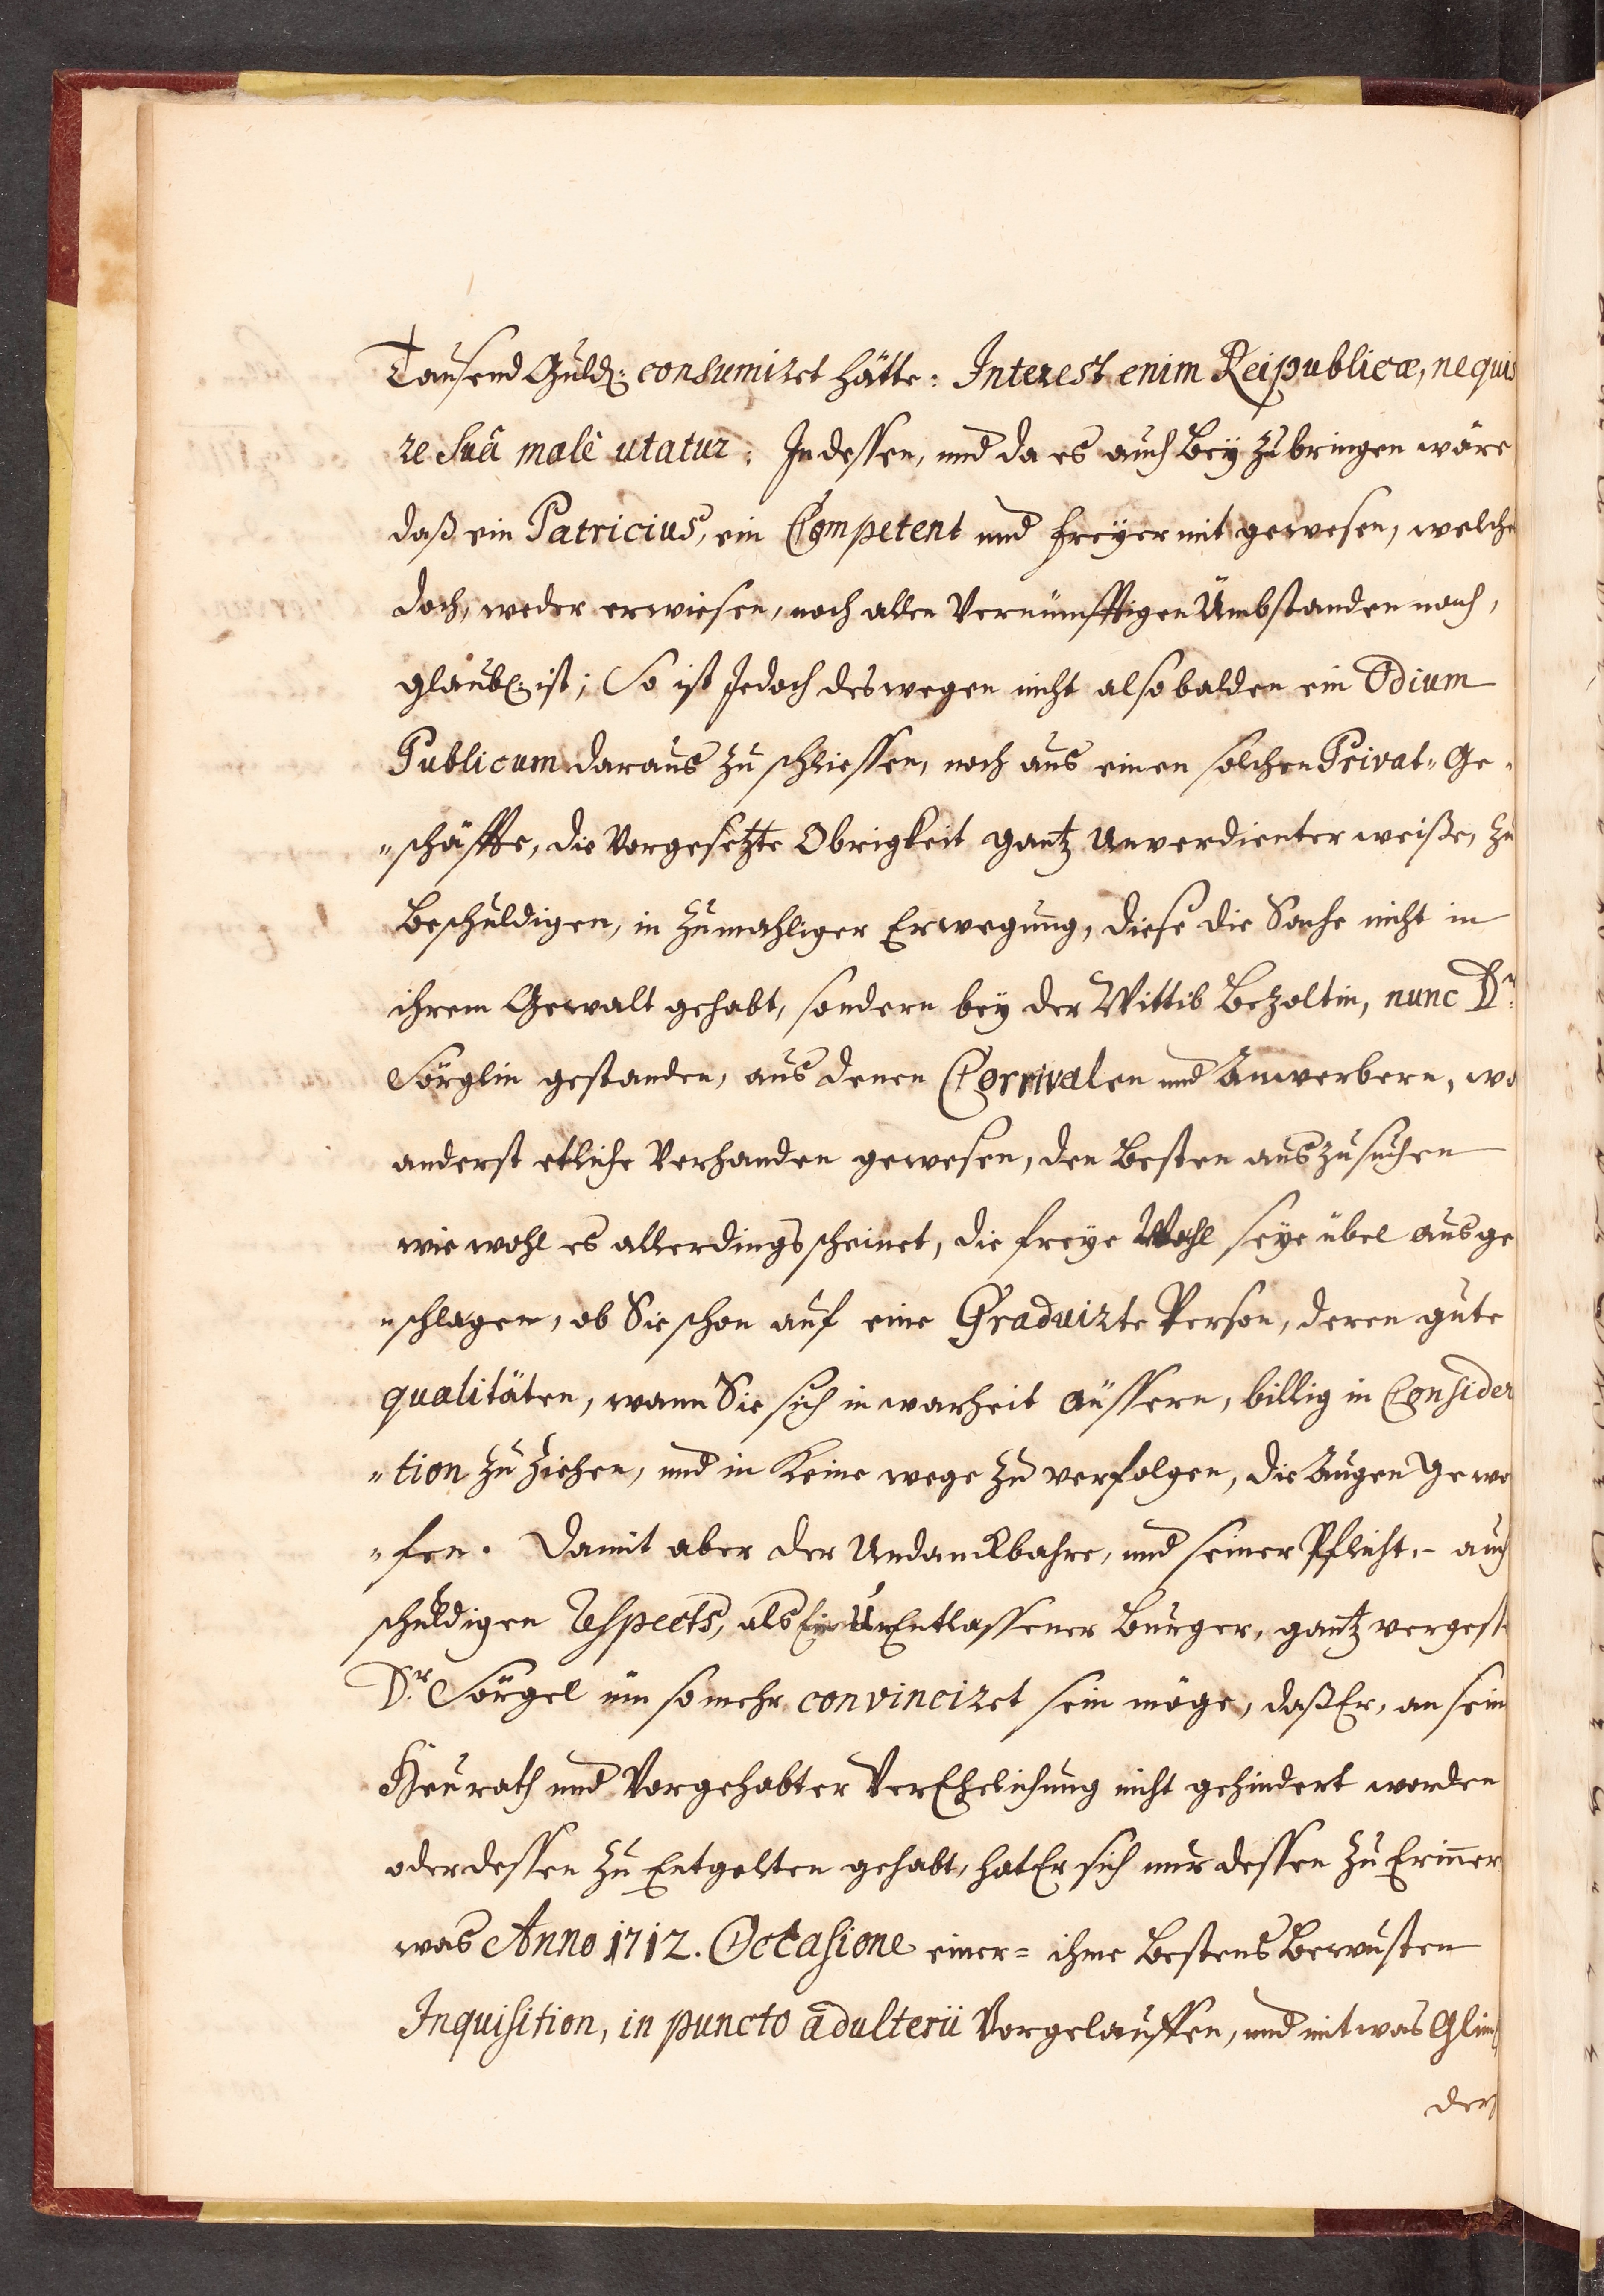 Tausend Guld: consumiret hätte: Interest enim Reipublicæ, ne quis
re suâ malè utatur: Indessen, und da es auch Bey zubringen wäre
daß ein Patricius, ein Competent und freyer mit gewesen, welche
doch, weder erwiesen, noch allen Vernünfftigen Umbstanden nach,
glaubl: ist; So ist Jedoch deswegen nicht alsobalden ein Odium
Publicum daraus zu schliessen, noch aus einen solchen Privat„ Ge„
„schäffte, die Vorgesetzte Obrigkeit gantz Unverdienter weiße, zu
Beschuldigen, in zumahliger Erwegung, diese die Sache nicht in
ihrem Gewalt gehabt, sondern bey der Wittib Bezoltin, nunc Dr:
Sörglin gestanden, aus denen Corrivalen und Anwerbern, wo
anderst etliche Verhanden gewesen, den Besten auszusuchen
wie wohl es allerdings scheinet, die freye Wahl seye übel ausge
„schlagen, ob Sie schon auf eine Graduirte Person, deren gute
qualitäten, wann Sie sich in warheit äussern, billig in Consider
„tion zu ziehen, und in Keine wege zu verfolgen, die Augen gewo
„fen. Damit aber der Undanckbahre, und seiner Pflicht- auch
schuldigen Respects, als Ein UnEntlassener Burger, gantz vergeste
Dr. Sörgel üm so mehr convinciret sein möge, daß Er, an sein
Heurath und Vorgehabter VerEhelichung nicht gehindert worden
oder dessen zu Entgelten gehabt, hat Er sich nur dessen zu Erinner
was Anno 1712. Occasione einer= ihme Bestens Bewusten
Inquisition, in puncto adulterii Vorgelauffen, und mit was Glim
der